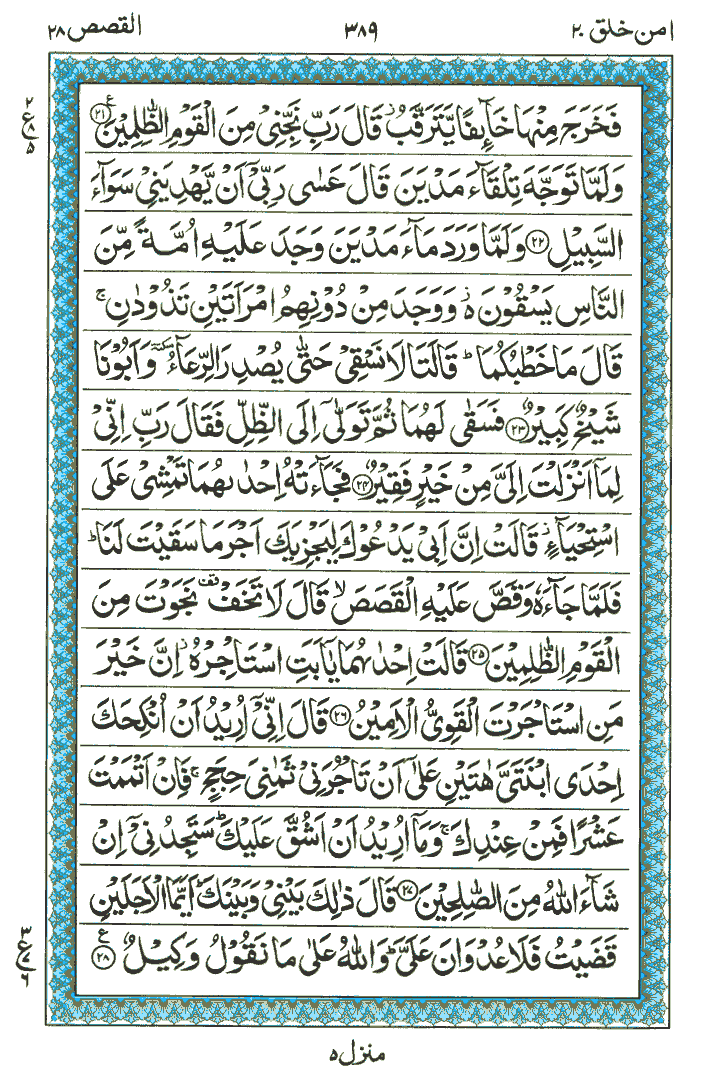 امن خلق ۲۰
۳۸۹
القصص ۲۸
۲
ع
۸
۵
فَخَرَجَ مِنْهَا خَآئِفًا يَّتَرَقَّبُ ۫ قَالَ رَبِّ نَجِّنِيْ مِنَ الْقَوْمِ الظّٰلِمِيْنَ ۲۱ ع
وَلَمَّا تَوَجَّهَ تِلْقَآءَ مَدْيَنَ قَالَ عَسٰى رَبِّيْٓ اَنْ يَّهْدِيَنِيْ سَوَآءَ
السَّبِيْلِ ۲۲ وَلَمَّا وَرَدَ مَآءَ مَدْيَنَ وَجَدَ عَلَيْهِ اُمَّةً مِّنَ
النَّاسِ يَسْقُوْنَ ۫ ە وَوَجَدَ مِنْ دُوْنِهِمُ امْرَاَتَيْنِ تَذُوْدٰنِ ۚ
قَالَ مَا خَطْبُكُمَا ؕ قَالَتَا لَا نَسْقِيْ حَتّٰى يُصْدِرَ الرِّعَآءُ ٚ وَاَبُوْنَا
شَيْخٌ كَبِيْرٌ ۲۳ فَسَقٰى لَهُمَا ثُمَّ تَوَلّٰىٓ اِلَى الظِّلِّ فَقَالَ رَبِّ اِنِّيْ
لِمَآ اَنْزَلْتَ اِلَيَّ مِنْ خَيْرٍ فَقِيْرٌ ۲۴ فَجَآءَتْهُ اِحْدٰىهُمَا تَمْشِيْ عَلَى
اسْتِحْيَآءٍ ۫ قَالَتْ اِنَّ اَبِيْ يَدْعُوْكَ لِيَجْزِيَكَ اَجْرَ مَا سَقَيْتَ لَنَا ؕ
فَلَمَّا جَآءَهٗ وَقَصَّ عَلَيْهِ الْقَصَصَ ۙ قَالَ لَا تَخَفْ ٚ نَجَوْتَ مِنَ
الْقَوْمِ الظّٰلِمِيْنَ ۲۵ قَالَتْ اِحْدٰىهُمَا يٰٓاَبَتِ اسْتَاْجِرْهُ ۫ اِنَّ خَيْرَ
مَنِ اسْتَاْجَرْتَ الْقَوِيُّ الْاَمِيْنُ ۲۶ قَالَ اِنِّيْٓ اُرِيْدُ اَنْ اُنْكِحَكَ
اِحْدَى ابْنَتَيَّ هٰتَيْنِ عَلٰٓى اَنْ تَاْجُرَنِيْ ثَمٰنِيَ حِجَجٍ ۚ فَاِنْ اَتْمَمْتَ
عَشْرًا فَمِنْ عِنْدِكَ ۚ وَمَآ اُرِيْدُ اَنْ اَشُقَّ عَلَيْكَ ؕ سَتَجِدُنِيْٓ اِنْ
شَآءَ اللّٰهُ مِنَ الصّٰلِحِيْنَ ۲۷ قَالَ ذٰلِكَ بَيْنِيْ وَبَيْنَكَ ؕ اَيَّمَا الْاَجَلَيْنِ
قَضَيْتُ فَلَا عُدْوَانَ عَلَيَّ ؕ وَاللّٰهُ عَلٰى مَا نَقُوْلُ وَكِيْلٌ ۲۸ ع
۳
ع
۷
۶
منزل ۵